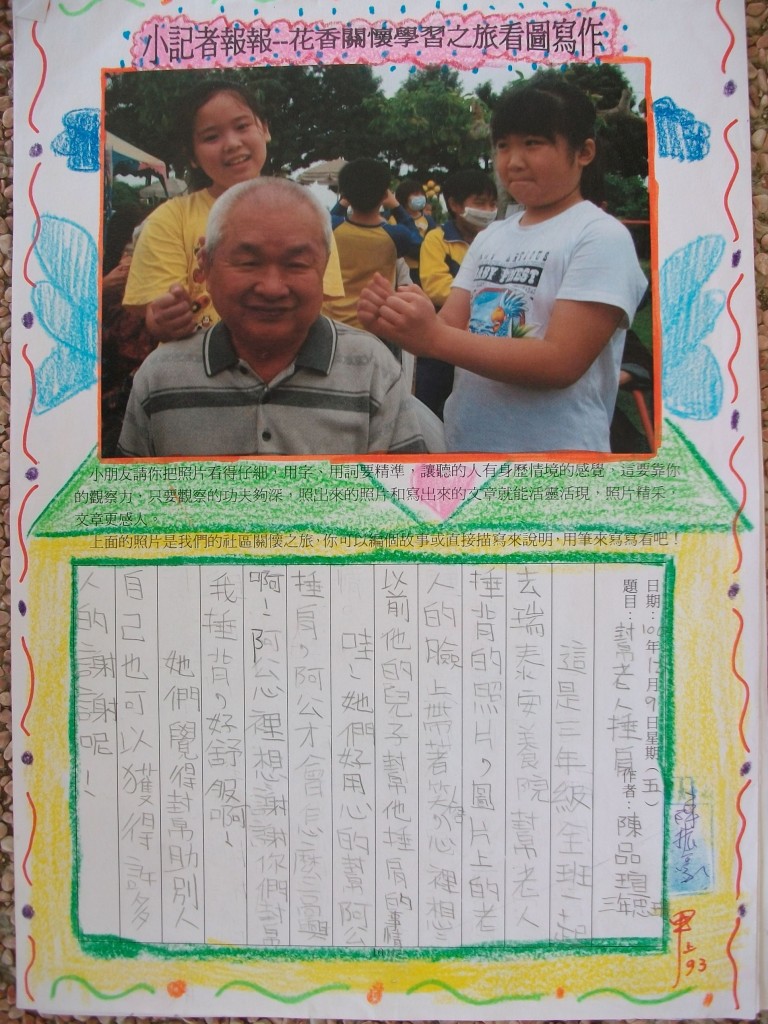 小記者報報--花香關懷學習之旅看圖寫作
小朋友請你把照片看得仔細，用字、用詞要精準，讓聽的人有身歷情境的感覺。這要靠你
的觀察力，只要觀察的功夫夠深，照出來的照片和寫出來的文章就能活靈活現，照片精采，
文章更感人。
上面的照片是我們的社區關懷之旅，你可以編個故事或直接描寫來說明，用筆來寫寫看吧！
日期：100年12月9日星期（五）
題目：幫老人捶肩 作者：陳品瑄
這是三年級全班一起
去瑞泰安養院幫老人
捶背的照片，圖片上的老
人的臉上帶著笑，心裡想：
以前他的兒子幫他捶肩的事情
哇！她們好用心的幫阿公
捶身，阿公才會怎麼高興
啊！阿公心裡想謝謝你們幫
我捶背，好舒服啊！
她們覺得幫助別人
自己也可以獲得許多
人的謝謝呢！
甲上
93